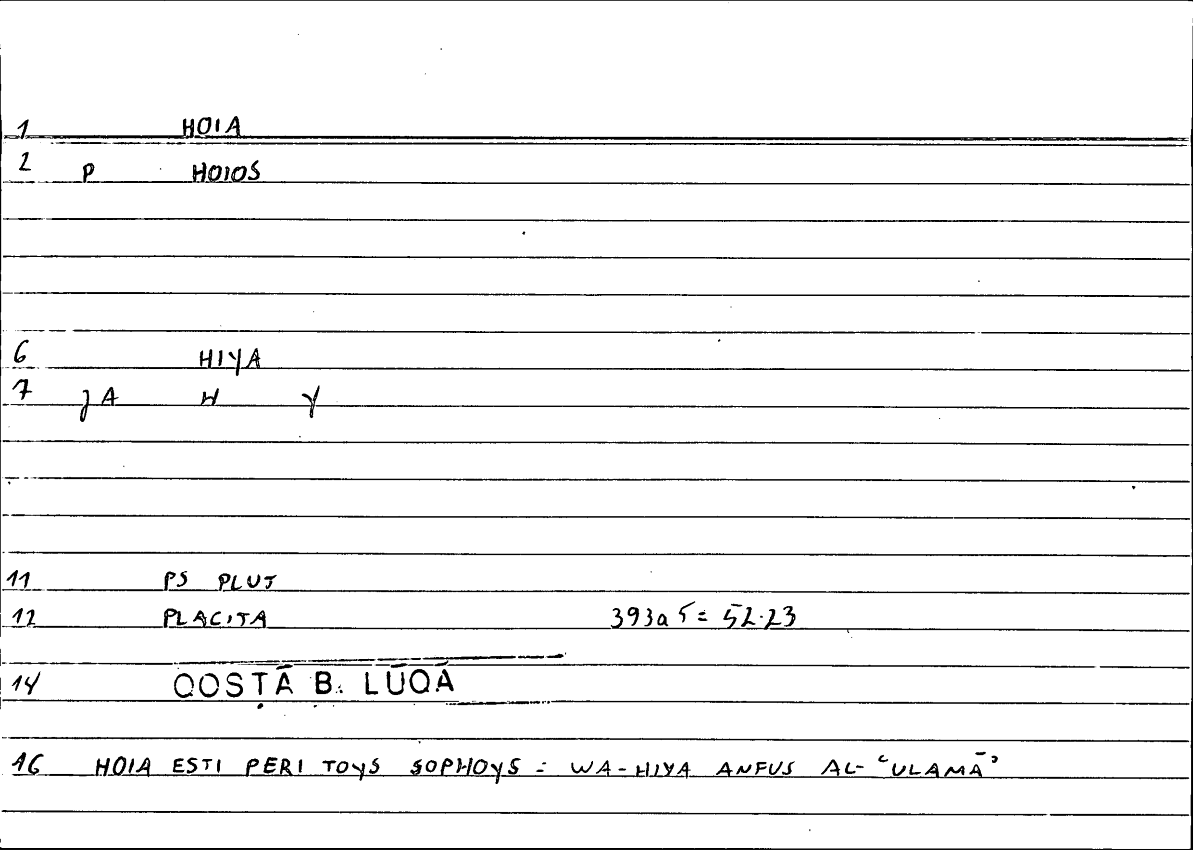 1 HOIA
2 P HOIOS
6 HIYA
7 JA W Y
11 PS PLUT
12 PLACITA 393a5 = 52.23
14 QOSṬĀ B. LŪQĀ
16 HOIA ESTI PERI TOYS SOPHOYS = WA-HIYA ANFUS AL-ʿULAMĀʾ